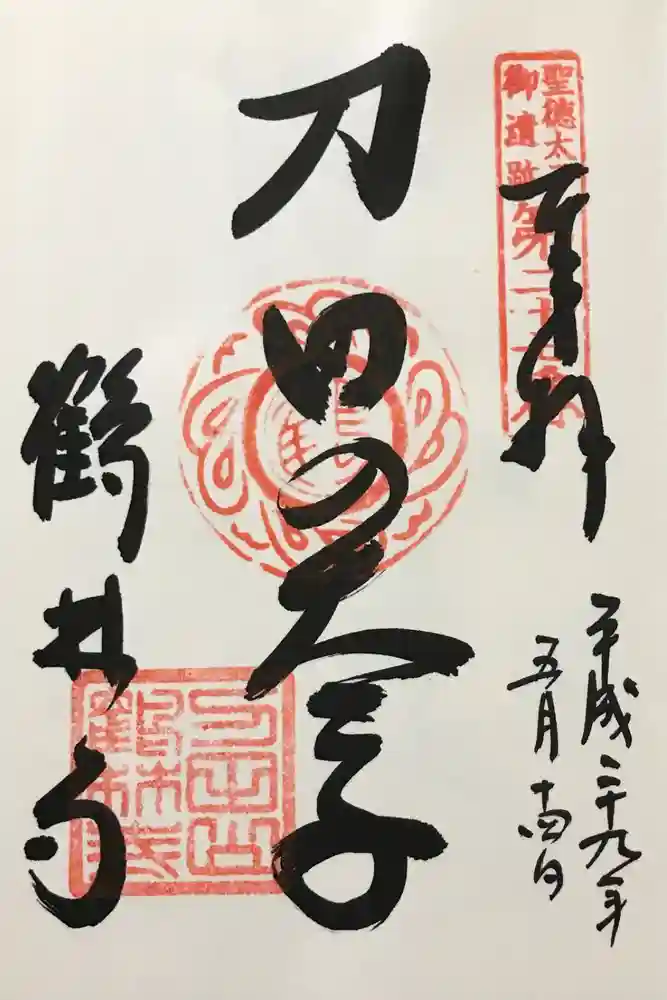 聖徳太子
御遺跡第二十
奉拝
平成二十九年
五月十四日
刀田の太子
鶴林寺
刀田山
鶴林寺